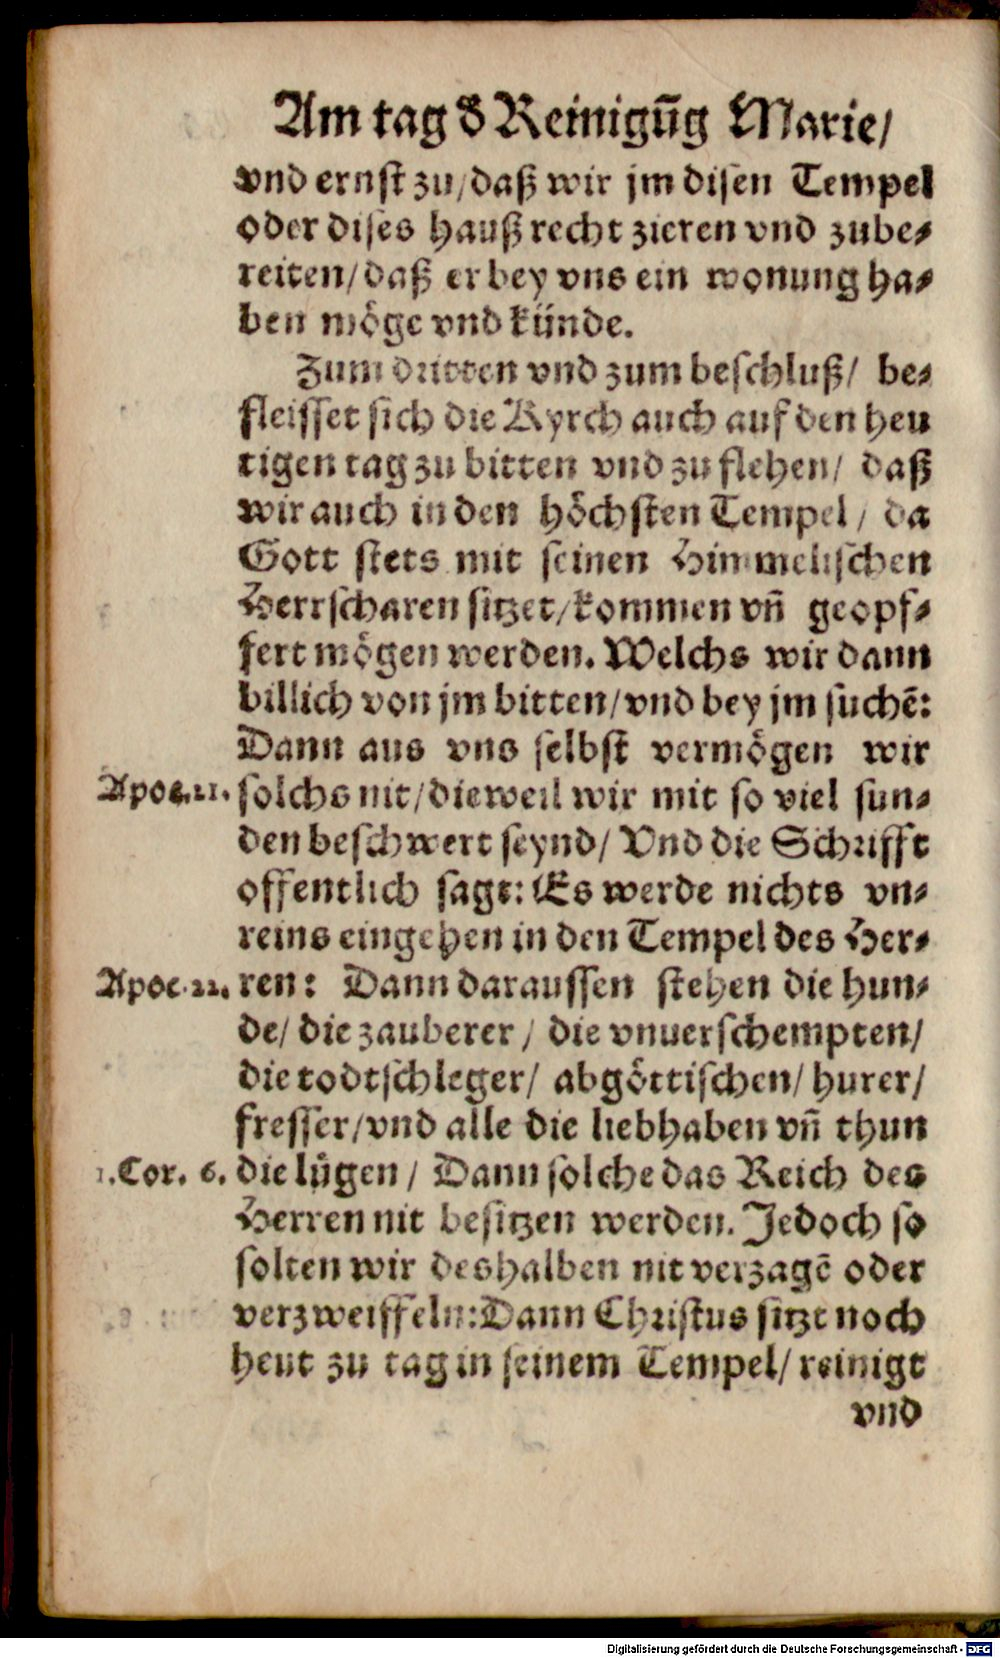 Am tag d̕ Reinigūg Marie/
vnd ernst zu/ daß wir jm disen Tempel
oder dises hauß recht zieren vnd zube⸗
reiten/ daß er bey vns ein wonung ha⸗
ben möge vnd künde.
Zum dritten vnd zum beschluß/ be⸗
fleisset sich die Kyrch auch auf den heu
tigen tag zu bitten vnd zu flehen/ daß
wir auch in den höchsten Tempel/ da
Gott stets mit seinen Himmelischen
Herrscharen sitzet/ kommen vn̄ geopf⸗
fert mögen werden. Welchs wir dann
billich von jm bitten/ vnd bey jm suchē:
Dann aus vns selbst vermögen wir
Apoc. 21. solchs nit/ dieweil wir mit so viel sun⸗
den beschwert seynd/ Vnd die Schrifft
offentlich sagt: Es werde nichts vn⸗
reins eingehen in den Tempel des Her⸗
Apoc. 22. ren: Dann daraussen stehen die hun⸗
de/ die zauberer/ die vnuerschempten/
die todtschleger/ abgöttischen/ hurer/
fresser/ vnd alle die liebhaben vn̄ thun
1. Cor. 6. die lügen/ Dann solche das Reich des
Herren nit besitzen werden. Jedoch so
solten wir deshalben nit verzagē oder
verzweiffeln: Dann Christus sitzt noch
heut zu tag in seinem Tempel/ reinigt
vnd
Digitalisierung gefördert durch die Deutsche Forschungsgemeinschaft - DFG